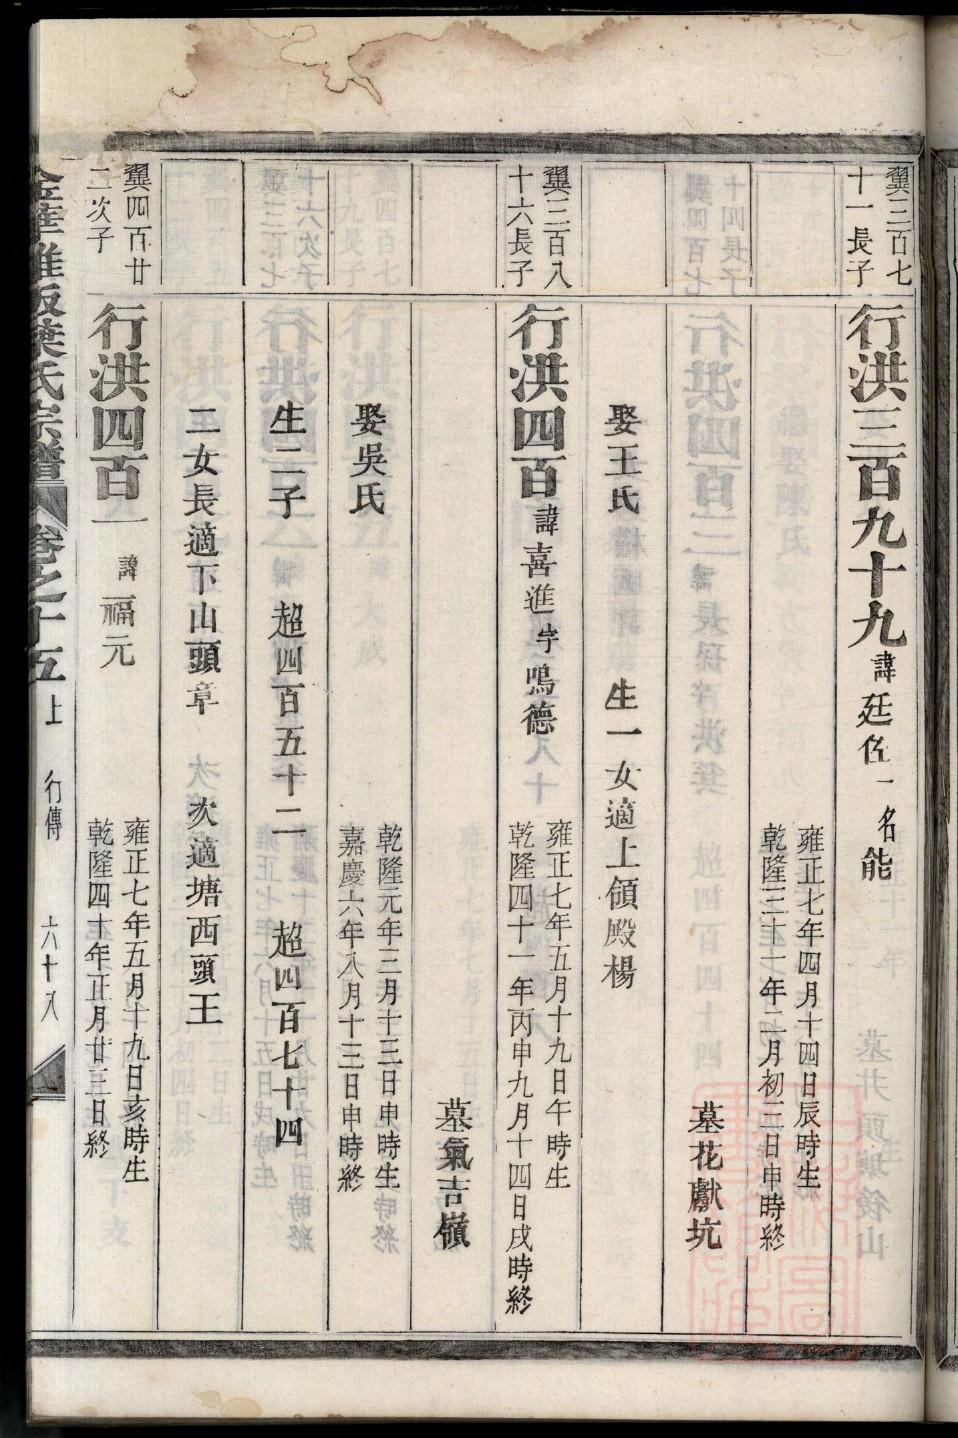 翼三百七
十一長子
行洪三百九十九 諱 廷佐 一名能
雍正七年四月十四日辰時生
乾隆三十一年二月初二日申時終
墓花獻坑
娶王氏 生一女適上領殿楊
翼三百八
十六長子
行洪四百 諱 喜進 字 鳴德
雍正七年五月十九日午時生
乾隆四十一年丙申九月十四日戌時終
墓氣吉嶺
娶吳氏
乾隆元年三月十三日申時生
嘉慶六年八月十三日申時終
生二子 超四百五十二 超四百七十四
二女長適下山頭章 次適塘西頭王
翼四百廿
二次子
行洪四百一 諱 福元
雍正七年五月十九日亥時生
乾隆四十年正月廿三日終
金華雅畈葉氏宗譜 卷之十五 上 行傳 六十八